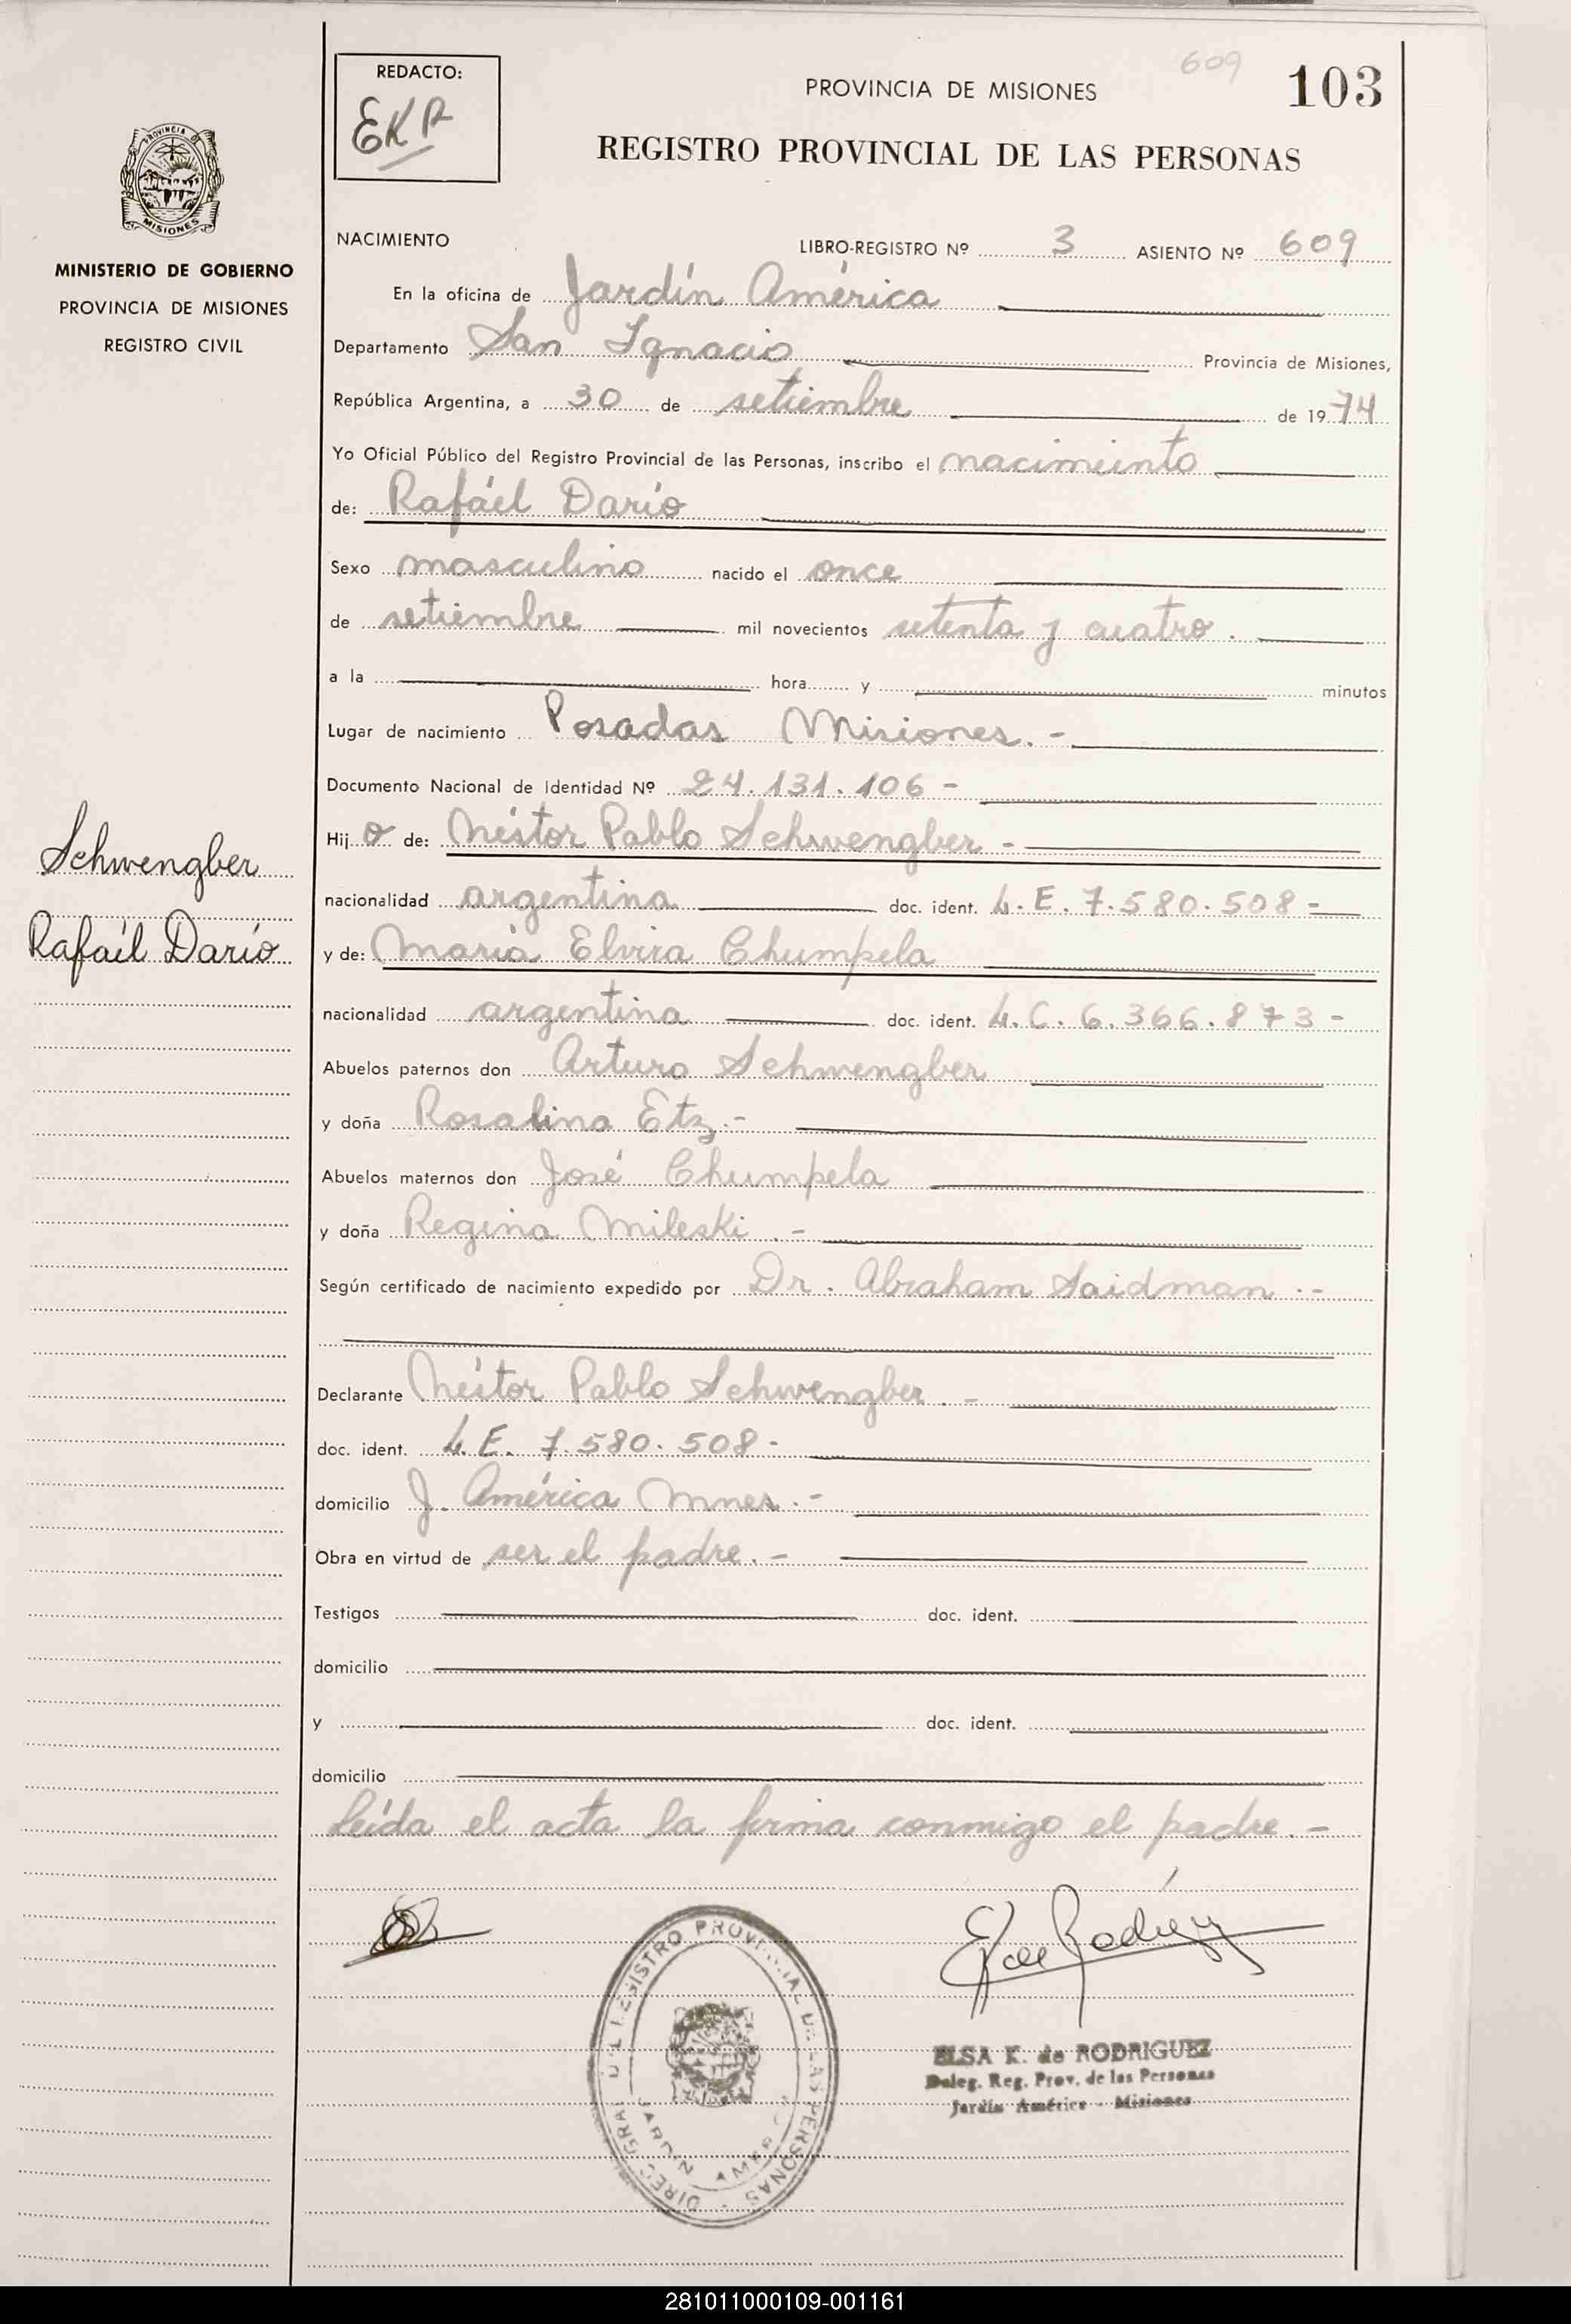 REDACTO:
EKR
609
103
PROVINCIA DE MISIONES
REGISTRO PROVINCIAL DE LAS PERSONAS
MISIONES
MINISTERIO DE GOBIERNO
PROVINCIA DE MISIONES
REGISTRO CIVIL
NACIMIENTO LIBRO-REGISTRO Nº 3 ASIENTO Nº 609
En la oficina de Jardín América
Departamento San Ignacio Provincia de Misiones,
República Argentina, a 30 de setiembre de 1974
Yo Oficial Público del Registro Provincial de las Personas, inscribo el nacimiento
de: Rafáel Darío
Sexo masculino nacido el once
de setiembre mil novecientos setenta y cuatro.
a la hora y minutos
Lugar de nacimiento Posadas Misiones.-
Documento Nacional de Identidad Nº 24.131.106-
Schwengber
Rafaél Darío
Hijo de: Néstor Pablo Schwengber -
nacionalidad argentina doc. ident. L.E. 7.580.508-
y de: María Elvira Chumpela
nacionalidad argentina doc. ident. L.C. 6.366.873-
Abuelos paternos don Arturo Schwengber
y doña Rosalina Etz.-
Abuelos maternos don José Chumpela
y doña Regina Mileski.-
Según certificado de nacimiento expedido por Dr. Abraham Saidman.-
Declarante Néstor Pablo Schwengber.-
doc. ident. L.E. 7.580.508-
domicilio J. América Mnes.-
Obra en virtud de ser el padre.-
Testigos doc. ident.
domicilio
y doc. ident.
domicilio
Leída el acta la firma conmigo el padre.-
DIREC. GRAL. DEL REGISTRO PROVINCIAL DE LAS PERSONAS
JARDIN AMERICA
ELSA K. de RODRIGUEZ
Deleg. Reg. Prov. de las Personas
Jardín América - Misiones
281011000109-001161